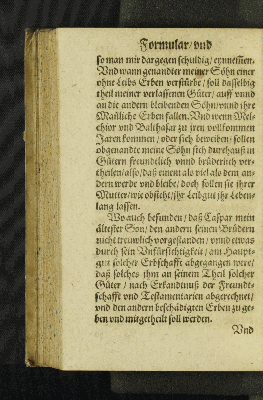 Formular/vnd
so man mir dargegen schuldig/eynnemen.
Vnd wann genandter meiner Söhn einer
ohne Leibs Erben verstürbe/soll dasselbig
theil meiner verlassenen Güter/auff vnnd
an die andern bleibenden Söhn/vnnd jhre
Mañliche Erben fallen. Vnd wenn Mel-
chior vnd Balthasar zu jren vollkommen
Jaren kommen/oder sich beweiben/sollen
abgenandte meine Söhn sich durchauß in
Gütern freundtlich vnnd brüderlich ver-
theilen/also/daß einem als viel als dem an-
dern werde vnd bleibe/doch sollen sie jhrer
Mutter/wie obsteht/jhr Leibgut jhr Leben-
lang lassen.
Wo auch befunden/daß Caspar mein
ältester Son/den andern seinen Brüdern
nicht treuwlich vorgestanden/vnnd etwas
durch sein Vnfürsichtigkeit/am Haupt-
gut solcher Erbschafft abgegangen were/
daß solches jhm an seinem Theil solcher
Güter/nach Erkandtnuß der Freundt-
schafft vnd Testamentarien abgerechnet/
vnd den andern beschädigten Erben zu ge-
ben vnd mitgetheilt soll werden.
Vnd